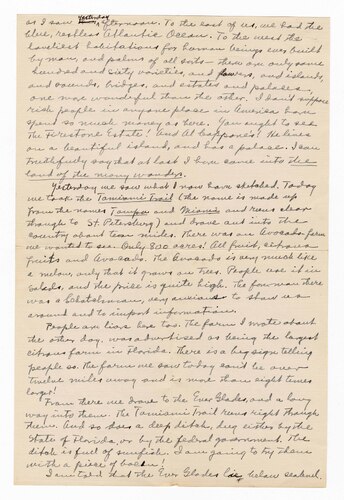 yesterday
as I saw afternoon. To the east of us, we had the
blue, restless Atlantic Ocean. To the west the
loveliest habitations for human beings ever built
by man, and palms of all sorts - there are only some
hundred and sixty varieties, and flowers, and islands,
and sounds, bridges, and estates and palaces,
one more wonderful than the other. I don't suppose
rich people in any one place in America have
spent so much money as here. You ought to see
the Firestone Estate! And Al Cappones! He lives
on a beautiful island, and has a palace. I can
truthfully say that at last I have come into the
land of the many wonder.
Yesterday we saw what I now have sketched. Today
we took the Tamiami Trail (the name is made up
from the names Tampa and Miami and runs clear
through to St. Petersburg) and drove out into the
country about ten miles. There was an Avocado farm
we wanted to see. Only 800 acres! All fruit, citrous
fruits and Avocado. The Avocado is very much like
a melon, only that it grows on trees. People use it in
salads, and the price is quite high. The foreman there
was a Scotchman, very anxious to show us
around and to impart information.
People can lie here too. The farm I wrote about
the other day, was advertised as being the largest
citrous farm in Florida. There is a big sign telling
people so. The farm we saw today can't be over
twelve miles away and is more than eight times
larger!
From there we drove to the Ever Glades, and a long
way into them. The Tamiami Trail runs right through
them. And so does a deep ditch, dug either by the
State of Florida, or by the federal government. The
ditch is full of sunfish. I am going to try them
with a piece of bacon!
I noted that the Ever Glades lay below sealevel.